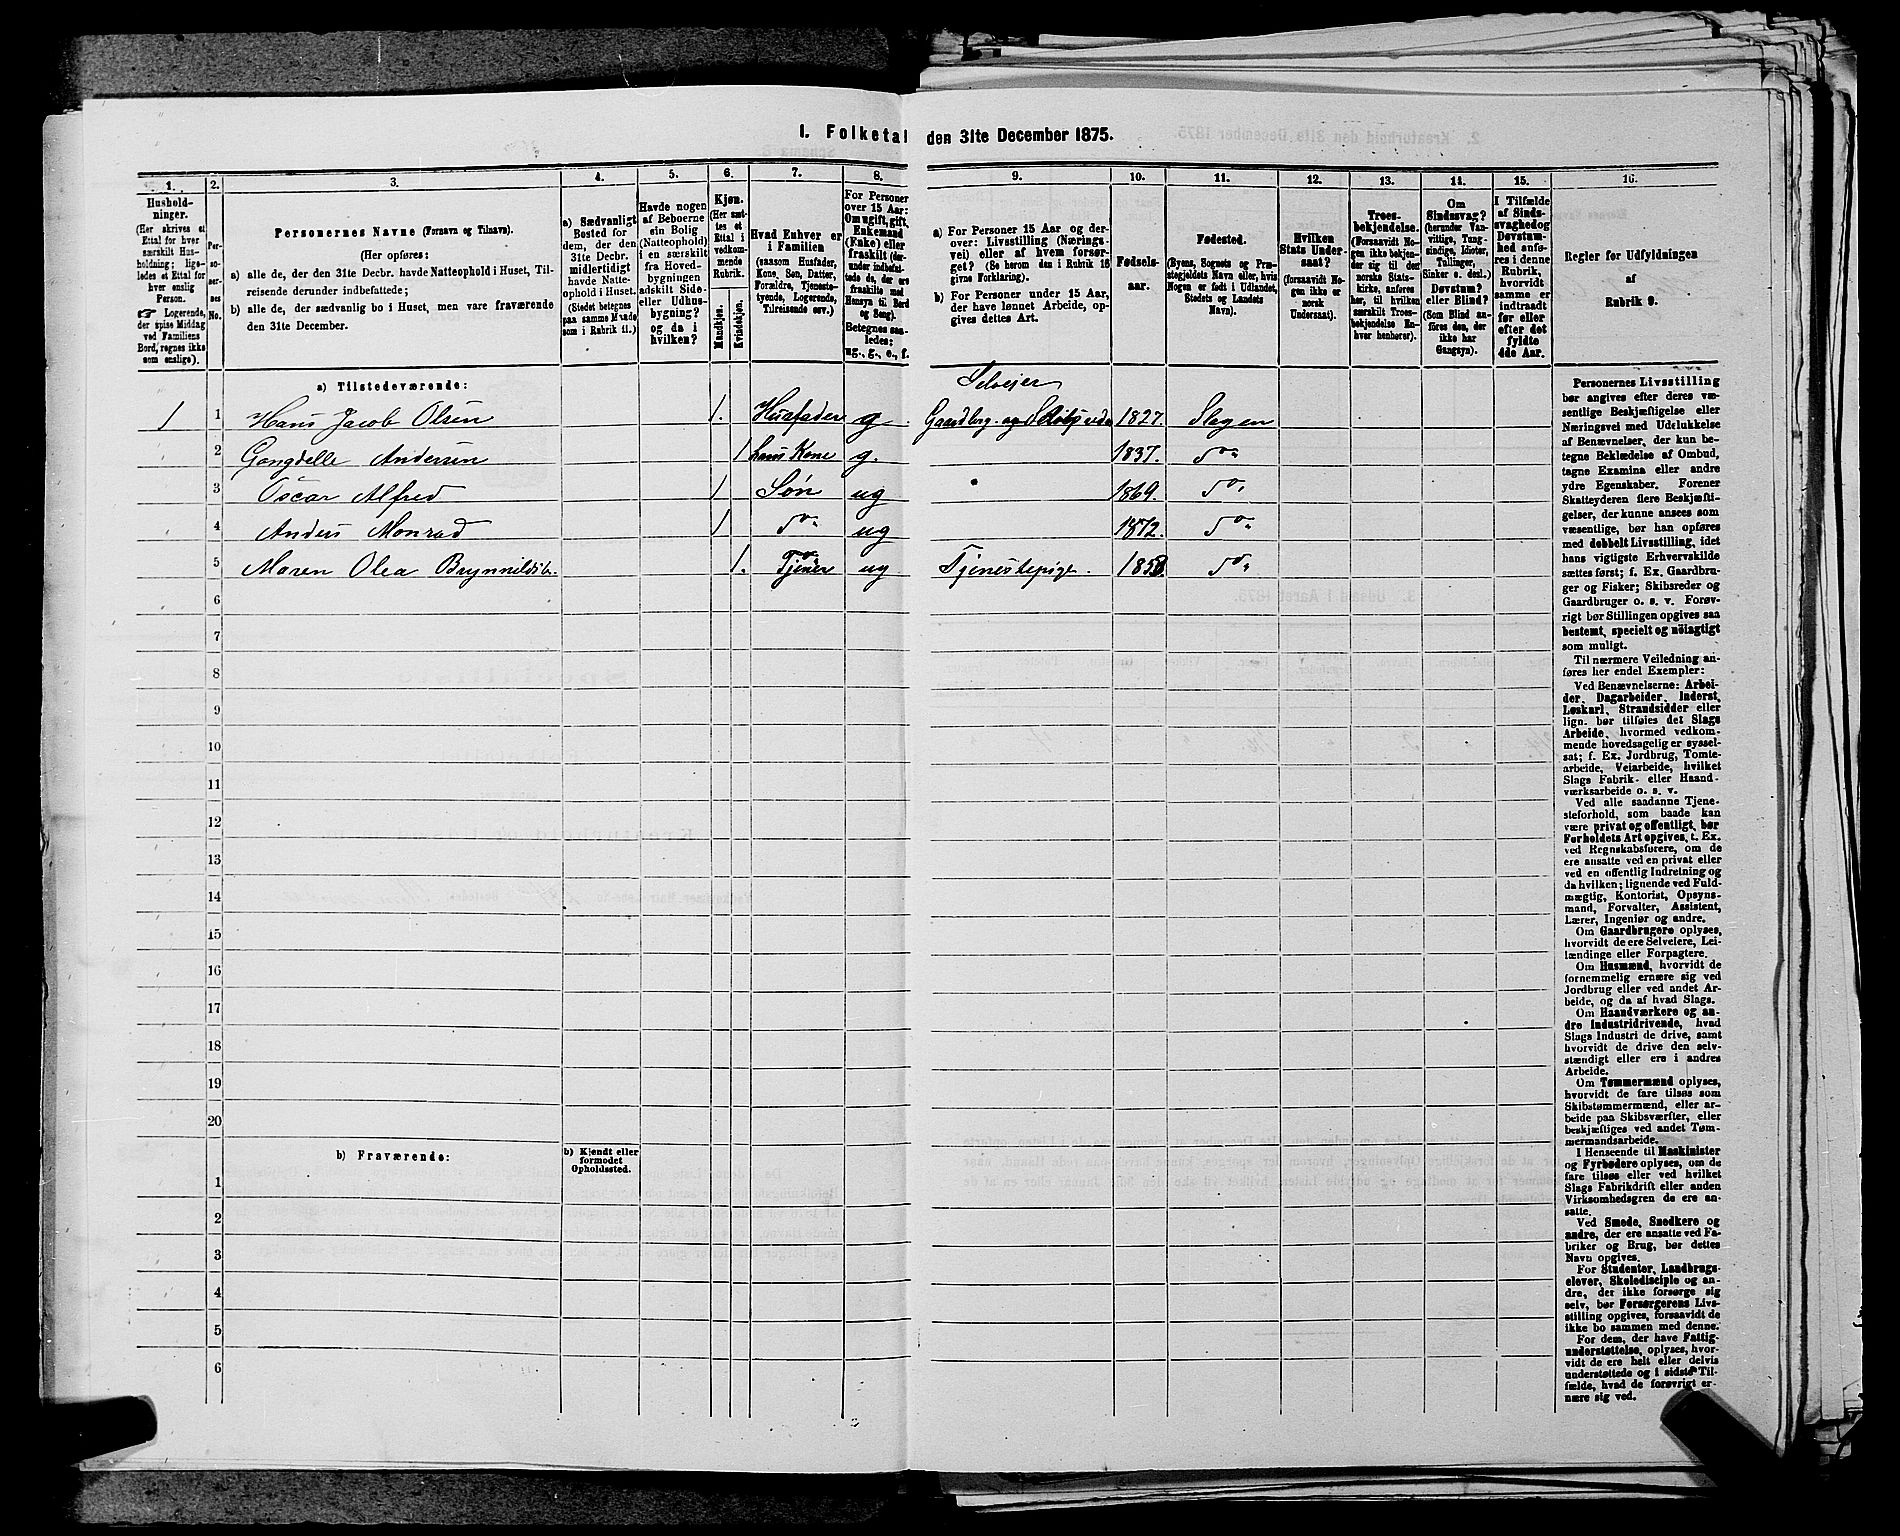 1. Folketal den 31te December 1875.
1. 2. 3. 4. 5. 6. 7. 8. 9. 10. 11. 12. 13. 14. 15. 16.
Hushold-
ninger.
(Her skrives et
Ettal for hver
særskilt Hus-
holdning; lige-
ledes et Ettal for
hver enslig
Person.
Logerende,
der spise Middag
ved Familiens
Bord, regnes ikke
som enslige).
Per-
so-
ner-
nes
No.
Personernes Navne (Fornavn og Tilnavn).
(Her opføres:
a) alle de, der den 31te Decbr. havde Natteophold i Huset, Til-
reisende derunder indbefattede;
b) alle de, der sædvanlig bo i Huset, men vare fraværende
den 31te December.
a) Sædvanligt
Bosted for
dem, der den
31te Decbr.
midlertidigt
havde Natte-
ophold i Huset.
(Stedet betegnes
paa samme Maade
som i Rubrik 11.)
Havde nogen
af Beboerne
sin Bolig
(Natteophold)
i en særskilt
fra Hoved-
bygningen
adskilt Side-
eller Udhus-
bygning?
og da i
hvilken?
Kjøn.
(Her sæt-
tes et
Ettal i
vedkom-
mende
Rubrik.
Mandkjøn.
Kvindekjøn.
Hvad Enhver er
i Familien
(saasom Husfader,
Kone, Søn, Datter,
Forældre, Tjeneste-
tyende, Logerende,
Tilreisende osv.)
For Personer
over 15 Aar:
Om ugift, gift,
Enkemand
(Enke) eller
fraskilt (der-
under indbefat-
tede de, der ere
fraskilte med
Hensyn til Bord
og Seng).
Betegnes saa-
ledes:
ug., g., e., f.
a) For Personer 15 Aar og der-
over: Livsstilling (Nærings-
vei) eller af hvem forsør-
get? (Se herom den i Rubrik 16
givne Forklaring).
b) For Personer under 15 Aar,
der have lønnet Arbeide, op-
gives dettes Art.
Fødsels-
aar.
Fødested.
(Byens, Sognets og Præ-
stegjeldets Navn eller, hvis
Nogen er født i Udlandet,
Stedets og Landets
Navn).
Hvilken
Stats Under-
saat?
(forsaavidt No-
gen ikke er
norsk
Undersaat).
Troes-
bekjendelse.
(Forsaavidt No-
gen ikke bekjen-
der sig til den
norske Stats-
kirke, anføres
her, til hvilken
særskilt Troes-
bekjendelse En-
hver henhører).
Om
Sindssvag?
(herunder Van-
vittige, Tung-
sindige, Idioter,
Tullinger,
Sinker o. desl.)
Døvstum?
eller Blind?
(Som Blind an-
føres den, der
ikke har
Gangsyn).
I Tilfælde
af Sinds-
svaghed og
Døvstum-
hed anfø-
res i denne
Rubrik,
hvorvidt
samme er
indtraadt
før eller
efter det
fyldte
4de Aar.
Regler for Udfyldningen
af
Rubrik 9.
a) Tilstedeværende:
Selveier
1 1 Hans Jacob Olsen 1. Husfader g Gaardbrg. og 1827. Slagen
2 Andersen 1 hans Kone g. 1837. do
3 Oscar Alfred 1 Søn ug 1869. do
4 Anders Monrad 1 do ug 1872. do
5 Maren Olea 1. Tjener ug Tjenestepige. do
6
7
8
9
10
11
12
13
14
15
16
17
18
19
20
b) Fraværende:
b) Kjendt eller
formodet
Opholdssted.
1
2
3
4
5
6
Personernes Livsstilling
bør angives efter deres væ-
sentlige Beskjæftigelse eller
Næringsvei med Udelukkelse
af Benævnelser, der kun be-
tegne Beklædelse af Ombud,
tagne Examina eller andre
ydre Egenskaber. Forener
Skatteyderen flere Beskjæfti-
gelser, der kunne ansees som
væsentlige, bør han opføres
med dobbelt Livsstilling, idet
hans vigtigste Erhvervskilde
sættes først; f. Ex. Gaardbru-
ger og Fisker; Skibsreder og
Gaardbruger o. s. v. Forøv-
rigt bør Stillingen opgives saa
bestemt, specielt og nöiagtigt
som muligt.
Til nærmere Veiledning an-
føres her endel Exempler:
Ved Benævnelserne: Arbei-
der, Dagarbeider, Inderst,
Løskarl, Strandsidder eller
lign. bør tilføies det Slags
Arbeide, hvormed vedkom-
mende hovedsagelig er syssel-
sat; f. Ex. Jordbrug, Tomte-
arbeide, Veiarbeide, hvilket
Slags Fabrik- eller Haand-
værksarbeide o. s. v.
Ved alle saadanne Tjene-
steforhold, som baade kan
være privat og offentligt, bør
Forholdets Art opgives, t. Ex.
ved Regnskabsførere, om de
ere ansatte ved en privat eller
ved en offentlig Indretning og
da hvilken; lignende ved Fuld-
mægtig, Kontorist, Opsyns-
mand, Forvalter, Assistent,
Lærer, Ingeniør og andre.
Om Gaardbrugere oplyses,
hvorvidt de ere Selveiere, Lei-
lændinge eller Forpagtere.
Om Husmænd, hvorvidt de
fornemmelig ernære sig ved
Jordbrug eller ved andet Ar-
beide, og da af hvad Slags.
Om Haandværkere og an-
dre Industridrivende, hvad
Slags Industri de drive, samt
hvorvidt de drive den selv-
stændigt eller ere i andres
Arbeide.
Om Tømmermænd oplyses,
hvorvidt de fare tilsøs som
Skibstømmermænd, eller ar-
beide paa Skibsværfter, eller
beskjæftiges ved andet Tøm-
mermandsarbeide.
I Henseende til Maskinister
og Fyrbødere oplyses, om de
fare tilsøs eller ved hvilket
Slags Fabrikdrift eller anden
Virksomhedsgren de ere an-
satte.
Ved Smede, Snedkere og
andre, der ere ansatte ved Fa-
briker og Brug, bør dettes
Navn opgives.
For Studenter, Landbrugs-
elever, Skoledisciple og an-
dre, der ikke forsørge sig
selv, bør Forsørgerens Livs-
stilling opgives, forsaavidt de
ikke bo sammen med denne.
For dem, der have Fattig-
understøttelse, oplyses, hvor-
vidt de ere helt eller delvis
understøttede og i sidste Til-
fælde, hvad de forøvrigt er-
nære sig ved.